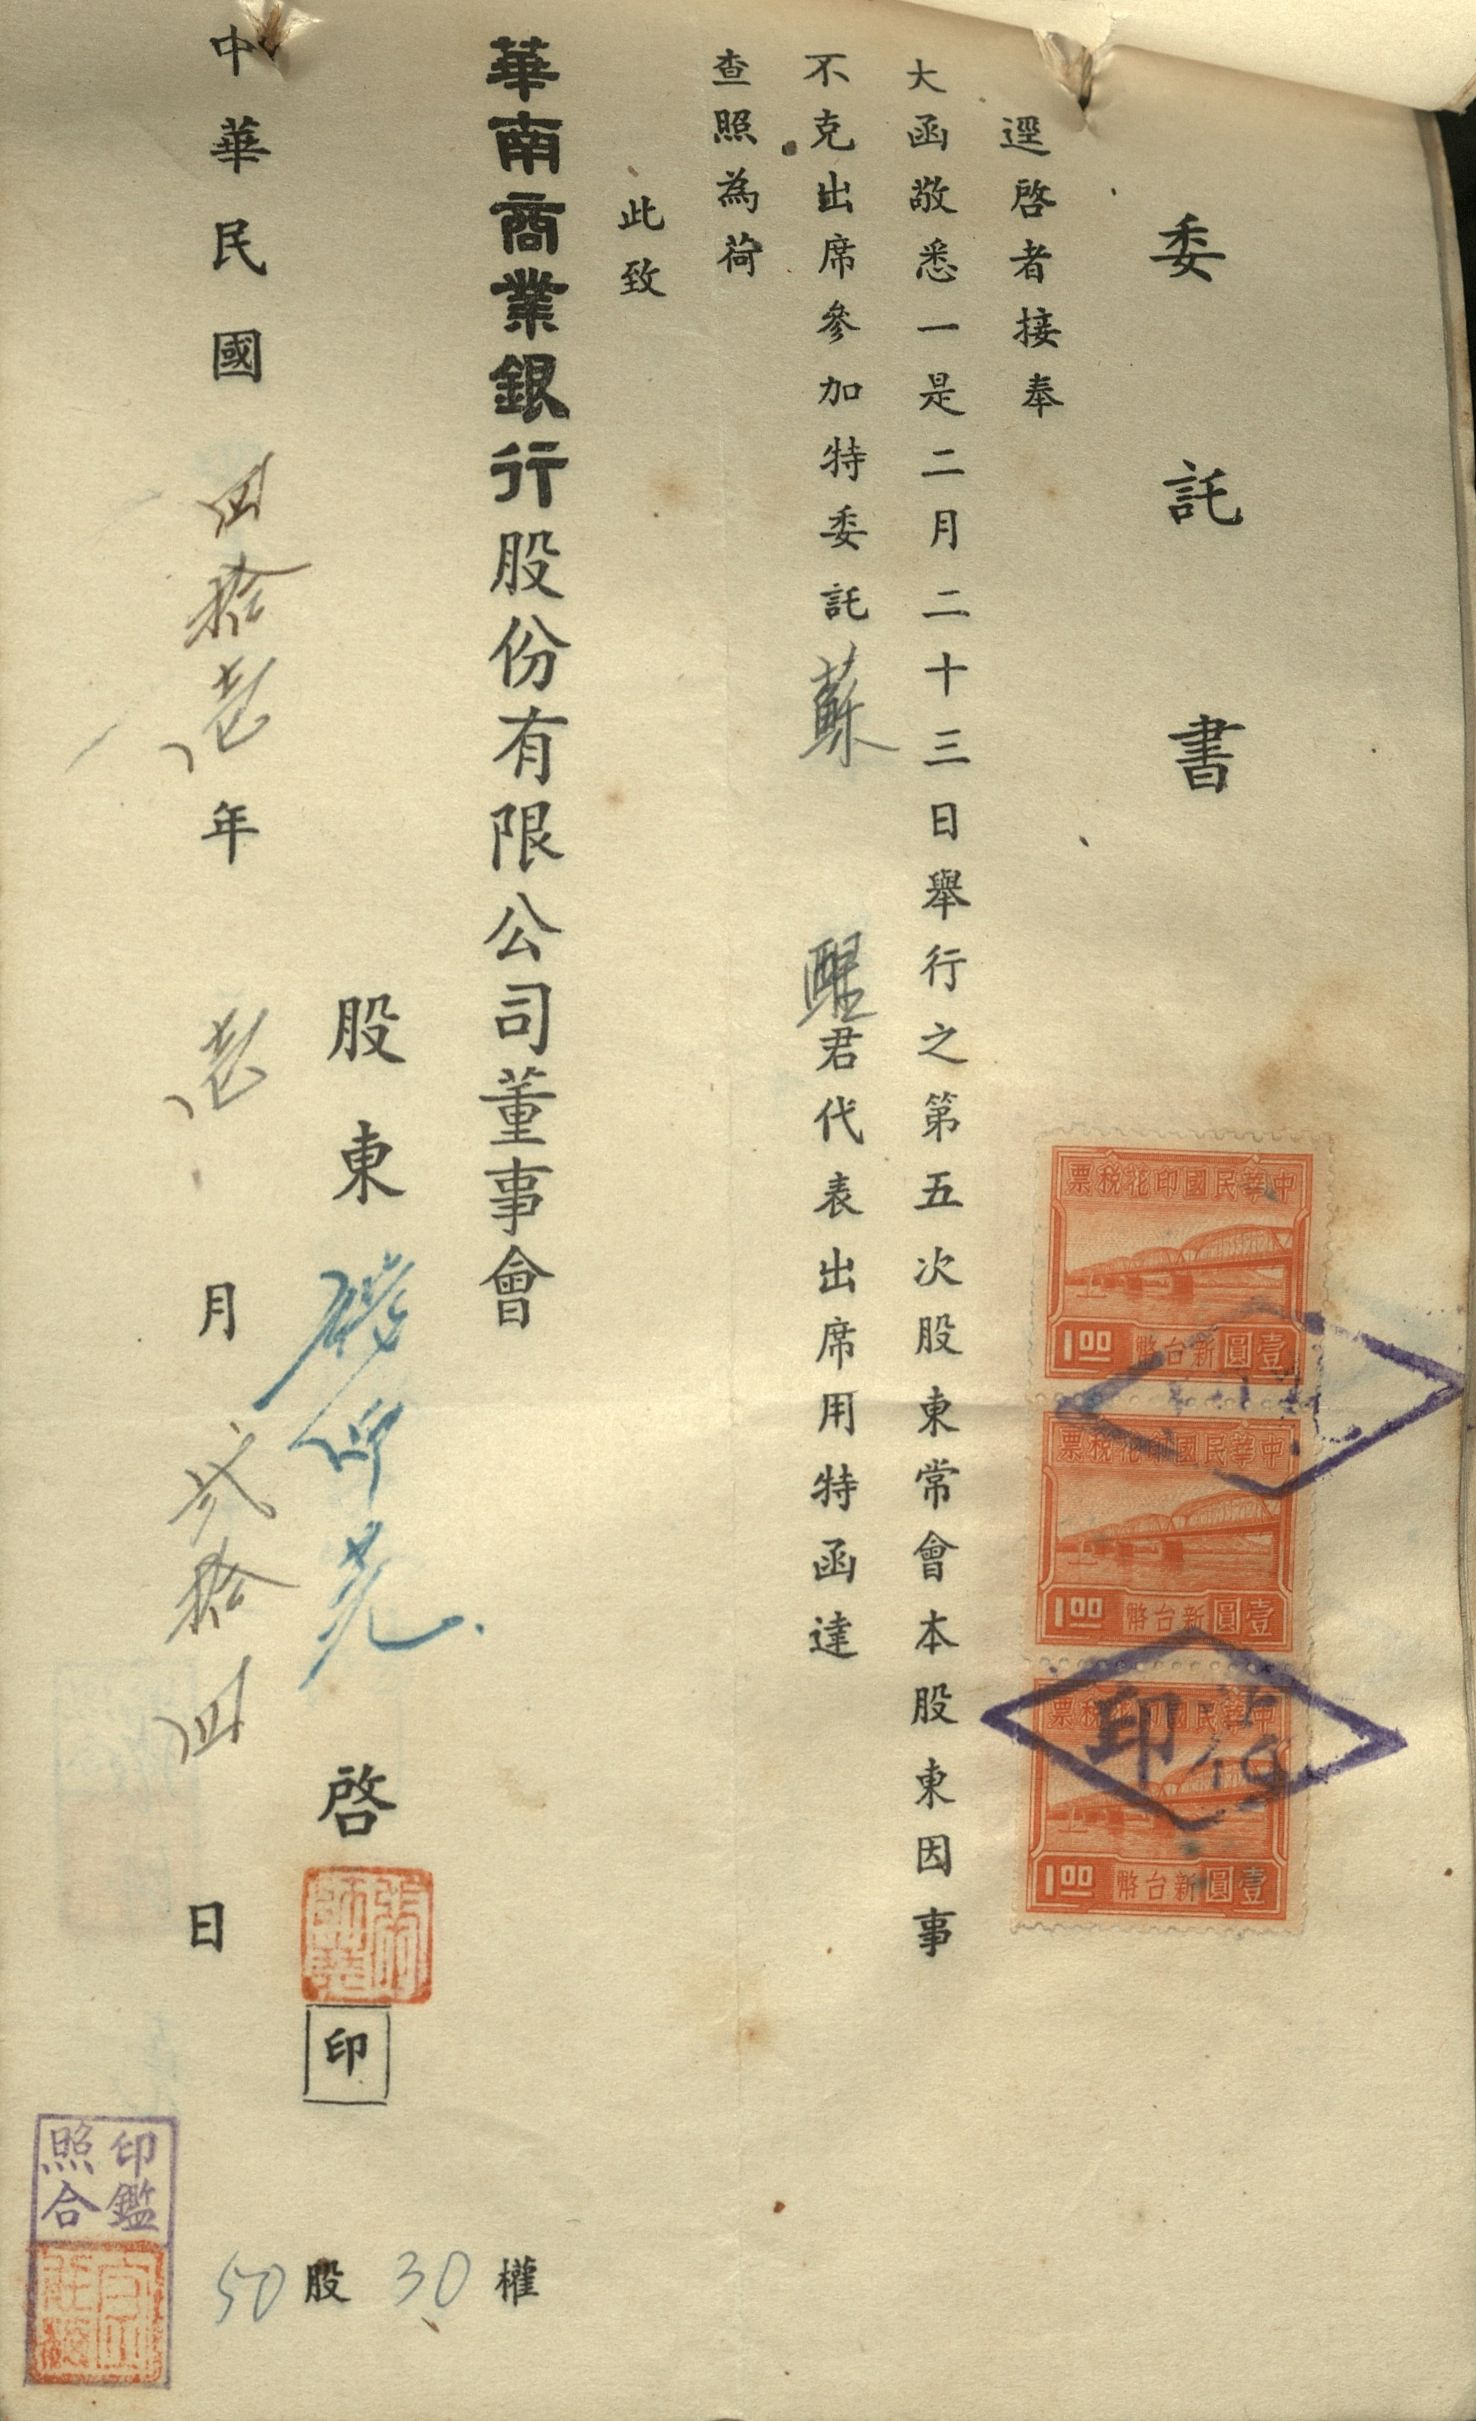 委託書
逕啓者接奉
大函敬悉一是二月二十三日舉行之第五次股東常會本股東因事
不克出席參加特委託蘇醒君代表出席用特函達
查照為荷
此致
華南商業銀行股份有限公司董事會
股東 仰光 啓 印
中華民國四拾壱年壱月弍拾四日
50股30權
印鑑
照合
中華民國印花稅票
壹圓新台幣
1.00
中華民國印花稅票
壹圓新台幣
1.00
中華民國印花稅票
壹圓新台幣
1.00
印